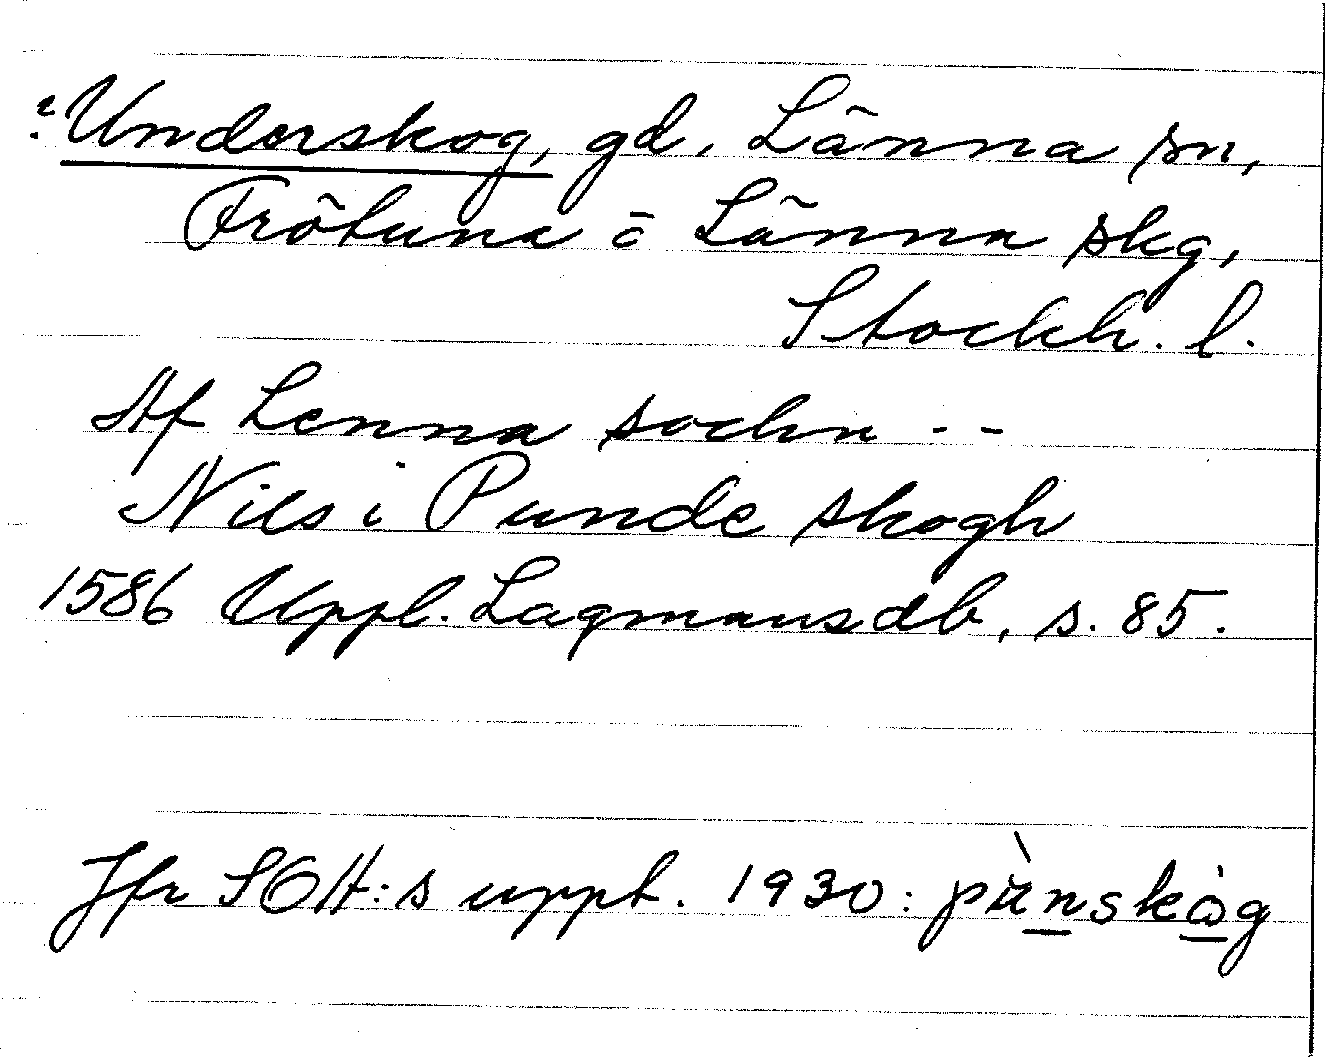 ?Underskog, gd, Länna sn,
Frötuna o Länna skg,
Stockh. l.
Af Lenna sochn --
Nils i Punde skogh
1586 Uppl. Lagmansdb, s. 85.
Jfr SOH:s uppt. 1930: pùnskòg